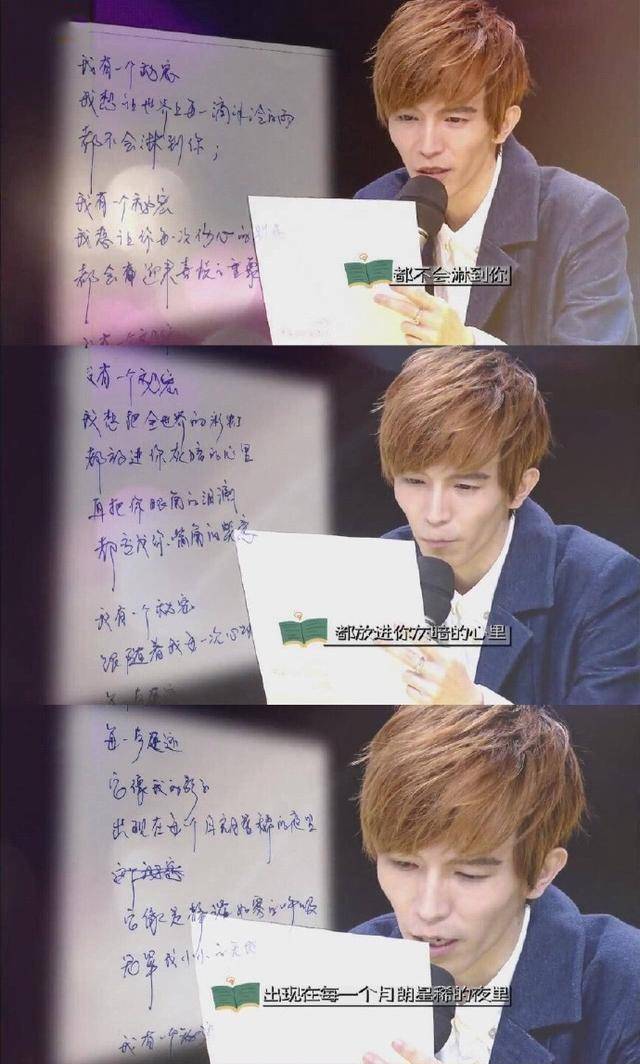 我有一个秘密
我想让世界上每一滴冰冷的雨
都不会淋到你；
我有一个秘密
我想让你每一次伤心的别离
都会有迎来喜悦的重聚
都不会淋到你
我有一个秘密
我想把全世界的彩灯
都放进你灰暗的心里
再把你眼角的泪滴
都变成你嘴角的笑意
我有一个秘密
跟随着我每一次心跳
都放进你灰暗的心里
每一步足迹
它像我的影子
出现在每一个月朗星稀的夜里
它像是静谧如雾的呼吸
我小小的
出现在每一个月朗星稀的夜里
我有一个秘密